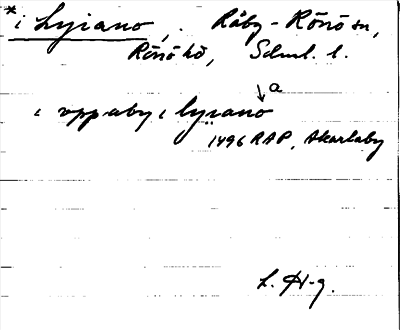 * i Lyiano, . Råby-Rönö sn,
Rönö hd, Söml. l.
a
i vppaby i lyiano
1496 RAP, Akarlaby
L. H-g.